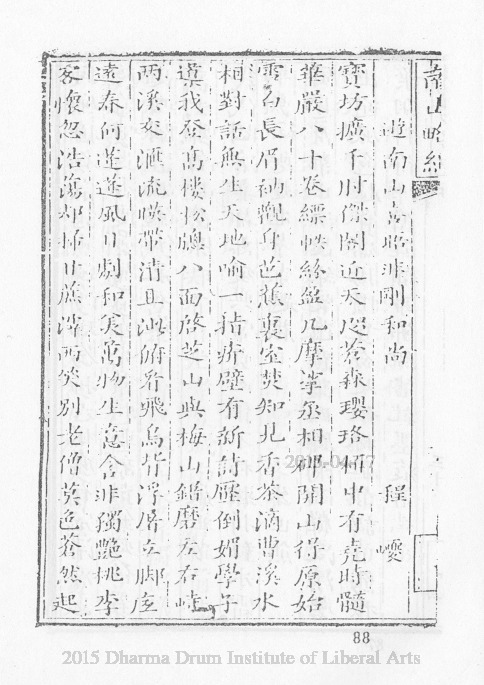 南山略紀
遊南山喜晤非剛和尚　程巎
寶坊擴千肘傑閣近天咫蒼森瓔珞柏中有堯時髓
華嚴八十卷縹帙餘盈几摩挲丞相碑開山得原始
雪石長眉衲觀身芭蕉裏室焚知見香茶滴曹溪水
相對話無生天地喻一秸疥壁有新詩壓倒媚學子
導我登高樓松牕八面啓芝山與梅山錯磨左右峙
兩溪交滙流暎帶清且泚俯看飛鳥背浮屠立脚底
遠春何蓬蓬風日劇和美萬物生意含非獨艷桃李
客懷忽浩蕩却掃甘蔗滓一笑別老僧莫色蒼然起
88
2015 Dharma Drum Institute of Liberal Arts